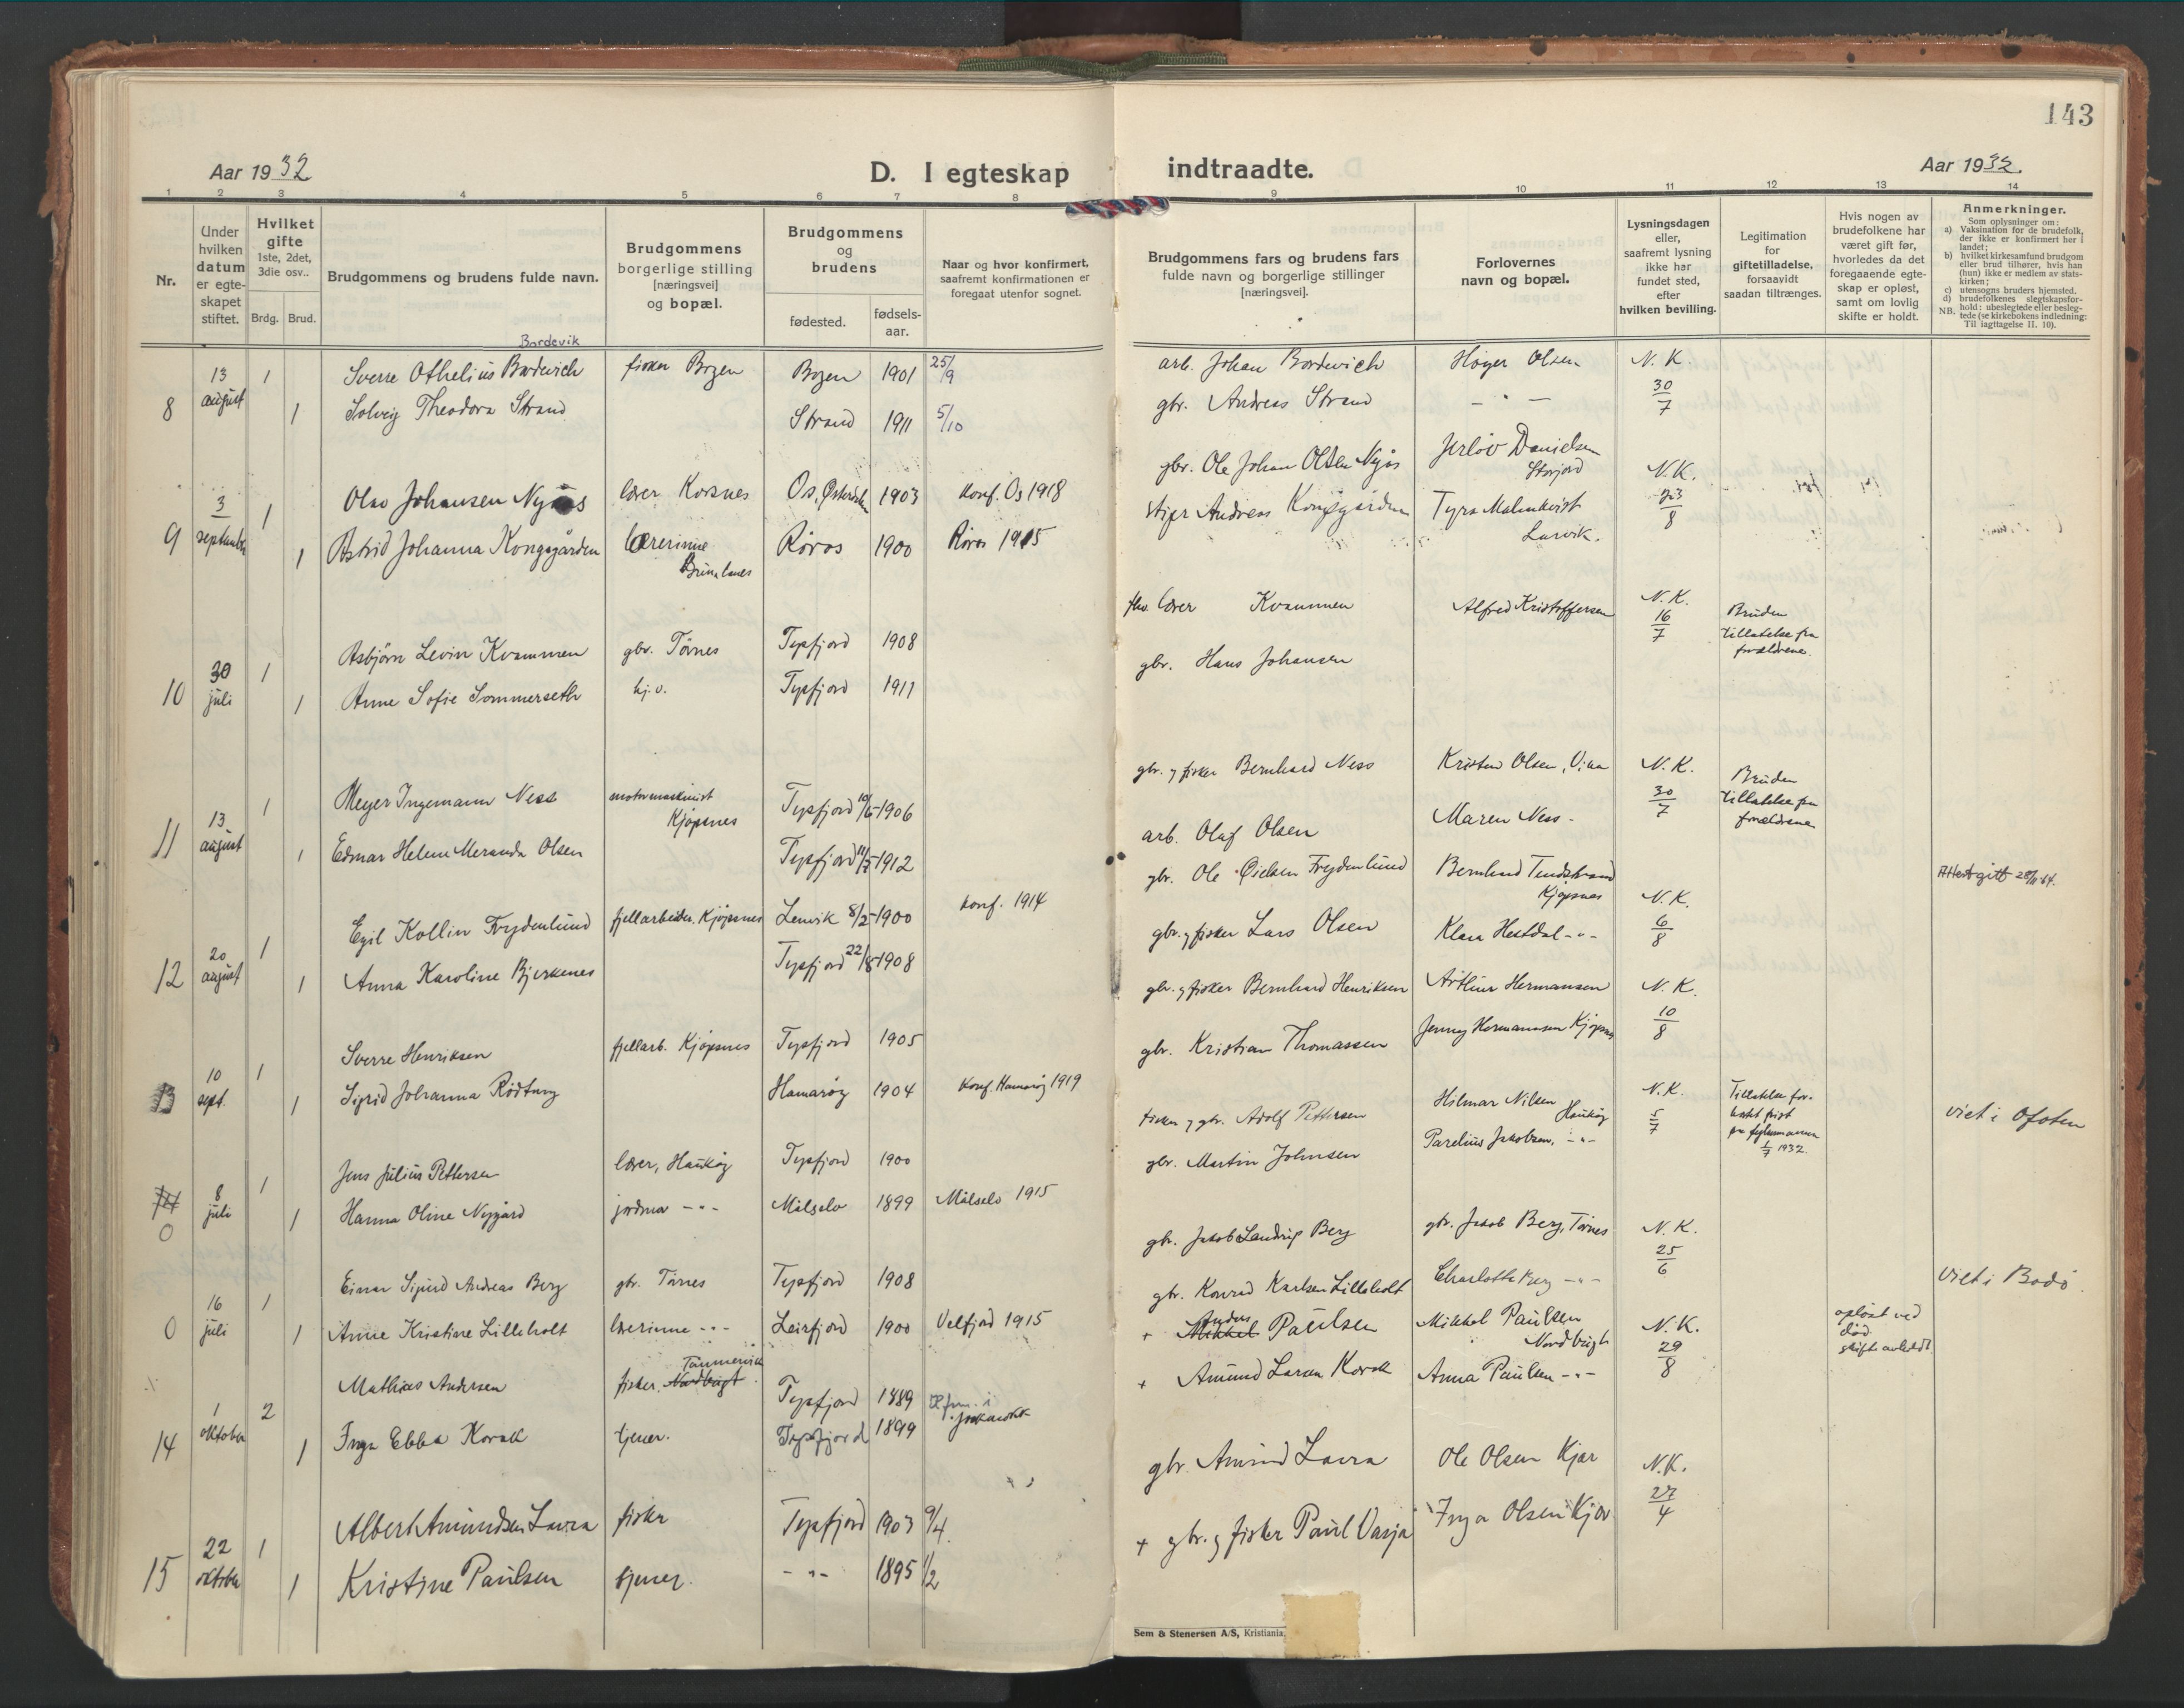 143
Aar 1932
D. I egteskap
indtraadte.
Aar 1932.
1 2 3 4 5 6 7 8 9 10 11 12 13 14
Nr.
Under hvilken datum er egteskapet stiftet.
Hvilket gifte 1ste, 2det, 3die osv..
Brdg. Brud.
Brudgommens og brudens fulde navn.
Brudgommens borgerlige stilling [næringsvei] og bopæl.
Brudgommens og brudens
fødested.
fødsels-aar.
Naar og hvor konfirmert, saafremt konfirmationen er foregaat utenfor sognet.
Brudgommens fars og brudens fars fulde navn og borgerlige stillinger [næringsvei].
Forlovernes navn og bopæl.
Lysningsdagen eller, saafremt lysning ikke har fundet sted, efter hvilken bevilling.
Legitimation for giftetilladelse, forsaavidt saadan tiltrænges.
Hvis nogen av brudefolkene har været gift før, hvorledes da det foregaaende egteskap er opløst, samt om lovlig skifte er holdt.
Anmerkninger.
Som oplysninger om:
a) Vaksination for de brudefolk, der ikke er konfirmert her i landet;
b) hvilket kirkesamfund brudgom eller brud tilhører, hvis han (hun) ikke er medlem av statskirken;
c) utensogns bruders hjemsted,
d) brudefolkenes slegtskapsforhold: ubeslegtede eller beslegtede (se kirkebokens indledning: Til iagttagelse II. 10).
NB.
Bordevik
8 13 august 1 Sverre Othelius Bordevich fisker Bogen Bogen 1901 25/9 arb. Johan Bordevich Høyer Olsen N. K. 30/7
1 Solveig Theodora Strand Strand 1911 5/10 gbr. Andreas Strand - " -
9 3 september 1 Olav Johansen Nyås lærer Korsnes Os, 1903 konf. Os 1918 gbr. Ole Johan Olsen Nyås Danielsen Storjord N. K. 23/8
1 Astrid Johanna Kongsgården lærerinne Røros 1900 Røros 1915 stiger Andreas Kongsgården Tyra Malmkvist Larvik.
10 30 juli 1 Asbjörn Levin Kvammen gbr. Tårnes Tysfjord 1908 fhv. lærer Kvammen Alfred Kristoffersen N. K. 16/7 Bruden tillatelse fra foreldrene.
1 Anne Sofie Sommerseth hj. v. Tysfjord 1911 gbr. Hans Johansen
11 13 august 1 Meyer Ingemann Ness motormaskinist Kjøpsnes Tysfjord 10/5 1906 gbr. y fisker Bernhard Ness Kristen Olsen, N. K. 30/7 Bruden tillatelse fra foreldrene
1 Edmar Helene Meranda Olsen Tysfjord 1912 arb. Oluf Olsen Maren Ness -
12 20 august 1 Egil Kollin Frydenlund fjellarbeider. Kjöpsnes Lenvik 8/2 1900 konf. 1914 gbr. Ole Frydenlund Bernhard Tindstrand Kjøpsnes N. K. 6/8
1 Anna Karoline Bjerkenes Tysfjord 22/8 1908 gbr. y fisker Lars Olsen Klara Hestdal - " -
13 10 sept. 1 Sverre Henriksen fjellarb. Kjøpsnes Tysfjord 1905 gbr. y fisker Bernhard Henriksen Arthur Hermansen N. K. 10/8
1 Sigrid Johanna Rödtang Hamarøy 1904 konf. Hamarøy 1919 gbr. Kristian Thomassen Jenny Hermannsen Kjøpsnes
0 8 juli 1 Jens Julius Pettersen lærer, Haukøy Tysfjord 1900 fisker y gbr. Adolf Pettersen Hilmar Nilsen Haukøy N. K. 5/7 viet i Ofoten
1 Hanna Oline Nygård jordmor - " - Målselv 1899 Målselv 1915 gbr. Martin Johnsen Parelius Jakobsen, - " -
0 16 juli 1 Einar Sigurd Andreas Berg gbr. Tårnes Tysfjord 1908 gbr. Jakob Berg gbr. Jakob Berg, Tårnes N. K. 25/6 Viet i Bodö
1 Anne Kristine Lilleholt lærerinne - " - Leirfjord 1900 Velfjord 1915 gbr. Konrad Karlsen Lilleholt Charlotte Berg - " -
14 1 oktober 2 Mathias Andersen fisker, Nordbugt Tysfjord 1889 + Mikkel Paulsen Mikkel Paulsen Nordbugt N. K. 29/8 opløst ved død
1 Inga Ebba Korak tjener. Tysfjord 1899 + Amund Larsen Korak Anna Paulsen - " -
15 22 oktober 1 Albert Amundsen Lavra fisker Tysfjord 1903 9/4 gbr. Amund Lavra Ole Olsen Kjær N. K. 27/4
1 Kristine Paulsen tjener. - " - 1895 1/2 + gbr. y fisker Paul Vasja Inga Olsen Kjær
Sem & Stenersen A/S, Kristiania.